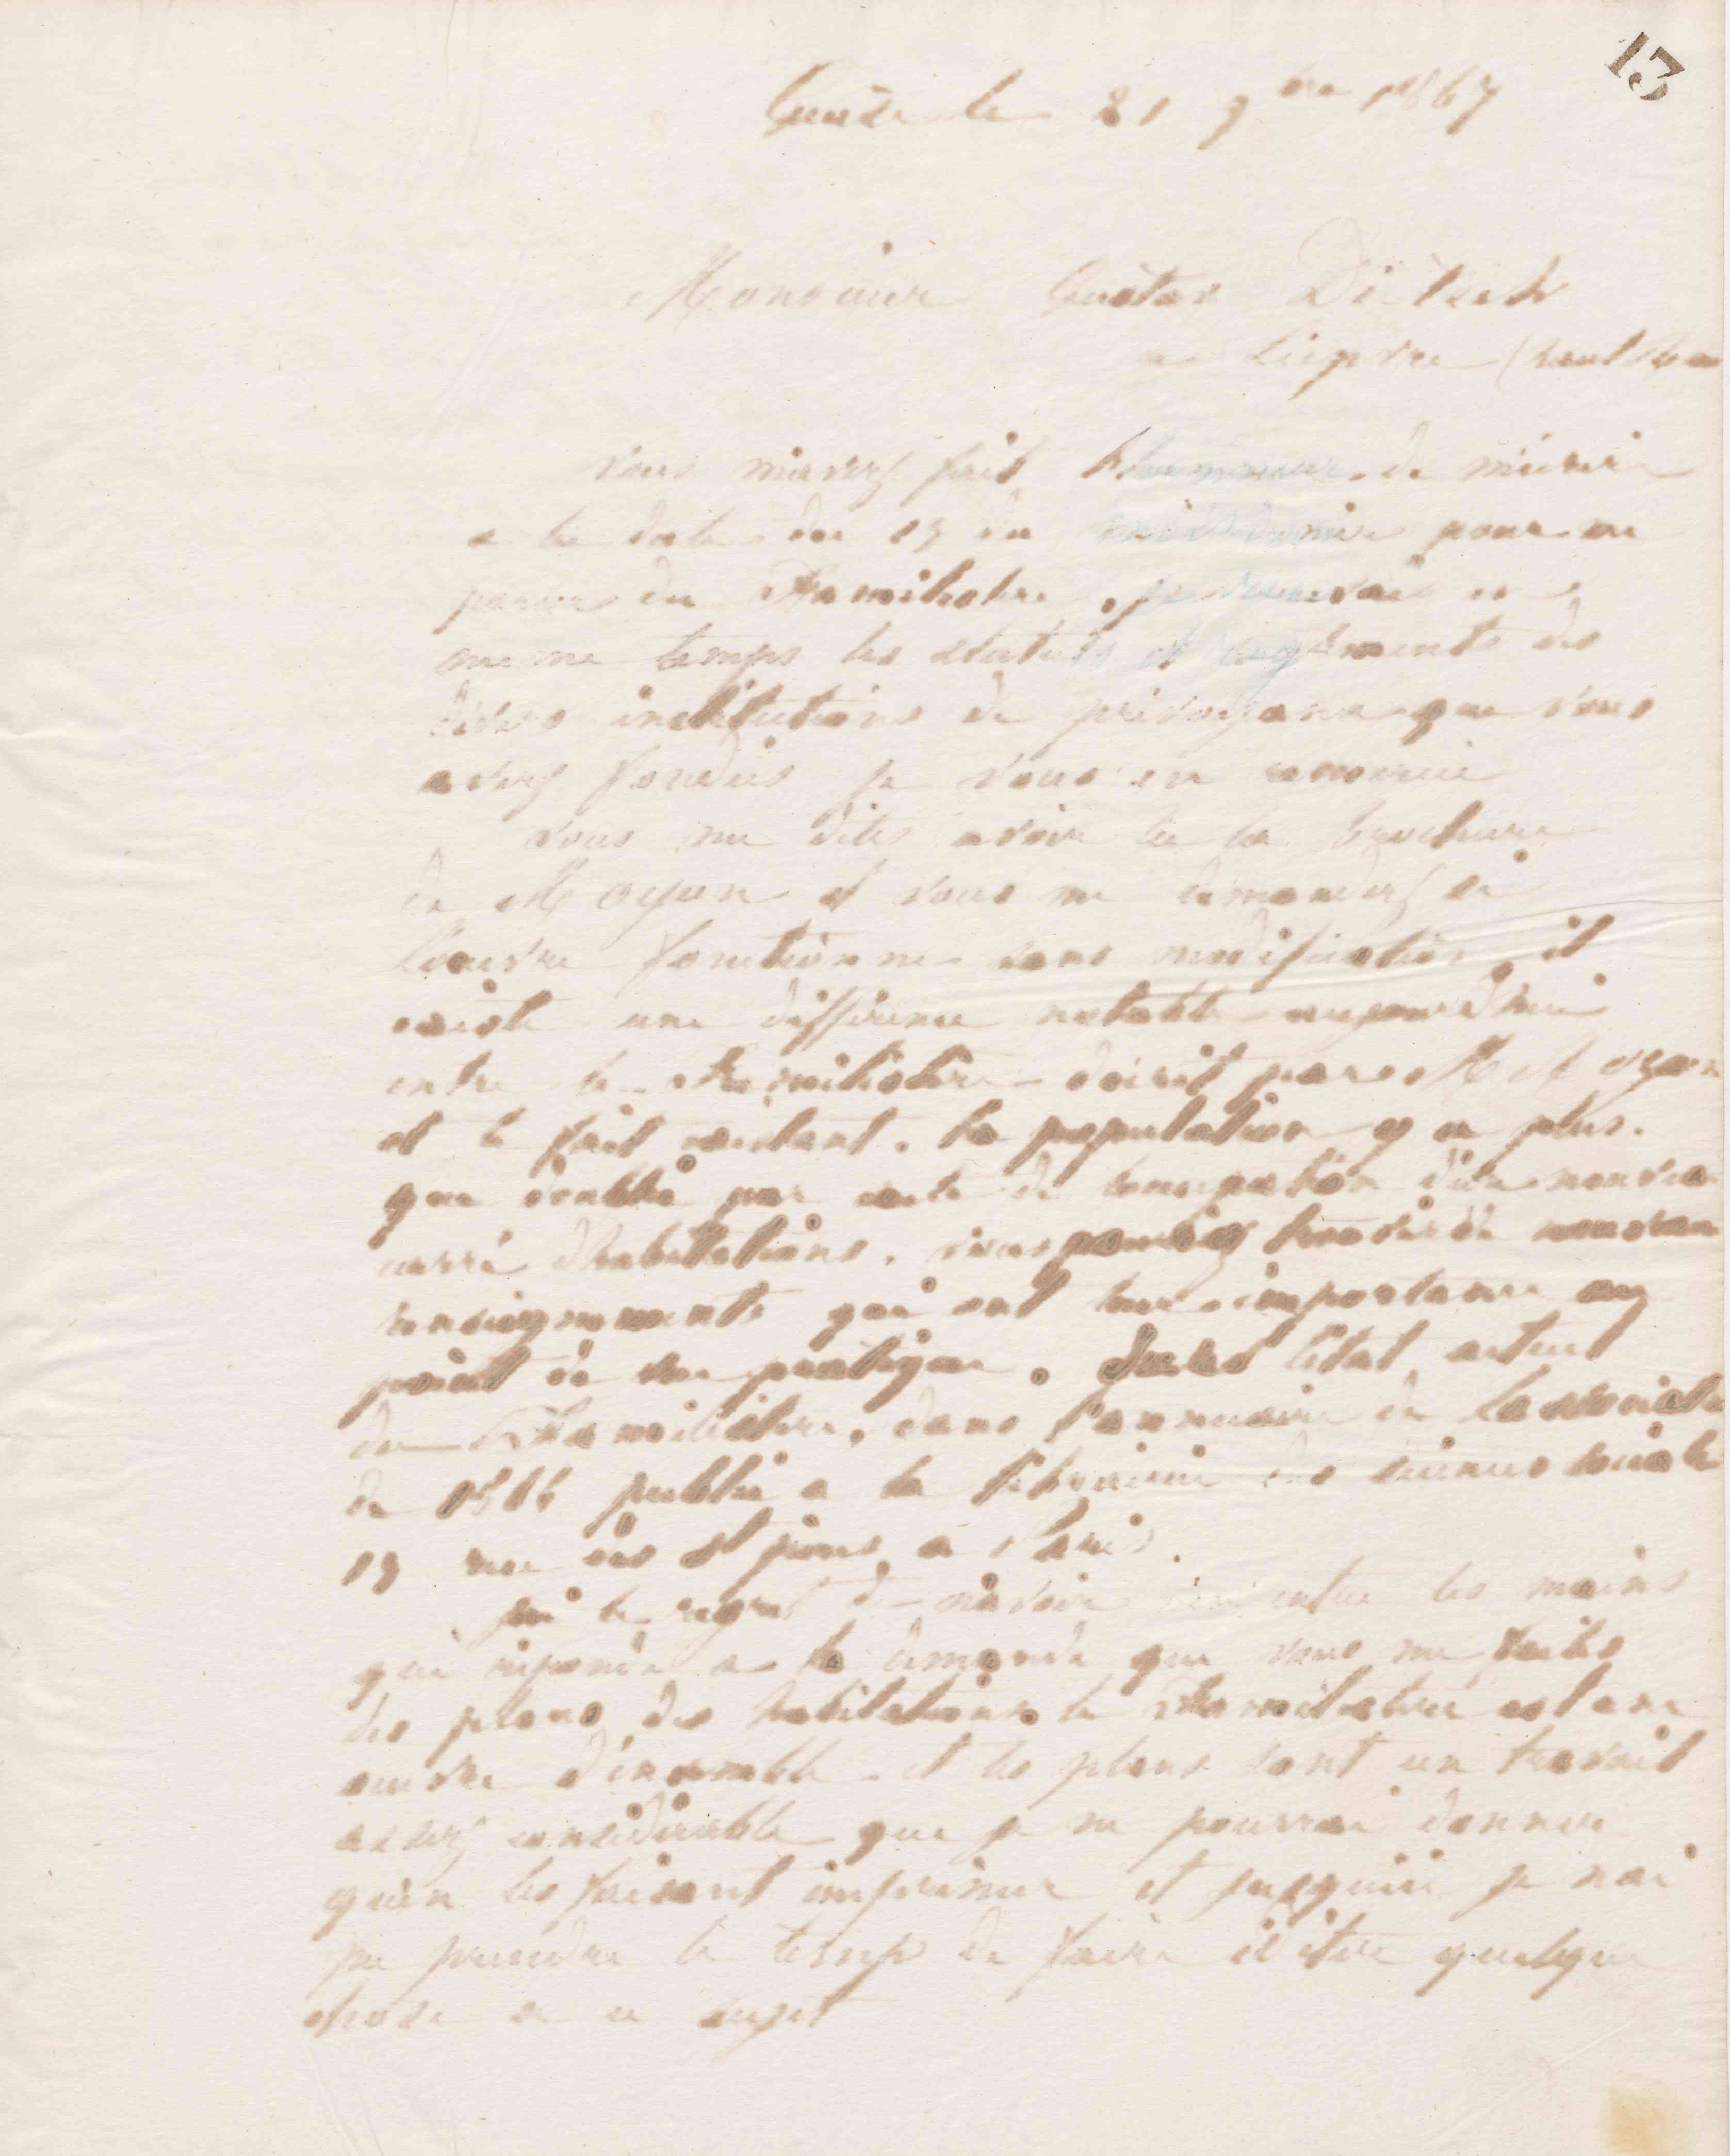 13
Guise le 21 9bre 1867
Monsieur Gustave Dietsch
a Liepvre (haut Rhin
Vous m'avez fait l'honneur de m'écrire
a la date du 19 du mois dernier pour me
parler du Familistère, je recevais en
meme temps les statuts et reglements des
divers institutions de prévoyance que vous
avez fondées je vous en remercie
vous me dites avoir lu la brochure
de M Oyon et vous me demandez si
l'oeuvre fonctionne sans modification, il
existe une différence notable aujourd'hui
entre le Familistère décrit par M A Oyon
et le fait existant. la population y a plus
que doublé par suite de l'occupation d'un nouveau
carré d'habitations. vous pourriez trouver de nouveaux
renseignements qui ont leur importance au
point de vue pratique. Sur l'état actuel
du Familistère, dans l'annuaire de l'association
de 1866 publié a la librairie des sciences sociales
13 rue des St pères a Paris.
j'ai le regret de n'avoir rien entre les mains
qui réponde a la demande que vous me faites
des plans des habitations. le Familistère est une
oeuvre d'ensemble et les plans sont un travail
assez considérable que je ne pourrai donner
qu'en les faisant imprimer et jusqu'ici je n'ai
pu prendre le temps de faire éditer quelque
chose a ce sujet